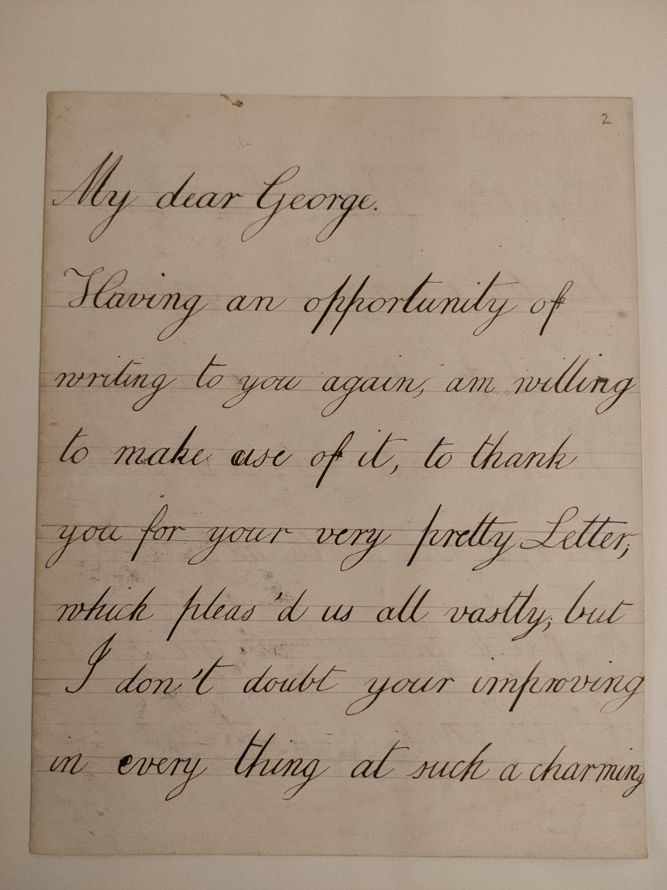 2
My dear George.
Having an opportunity of
writing to you again, am willing
to make use of it, to thank
you for your very pretty Letter,
which pleas'd us all vastly, but
I don't doubt your improving
in every thing at such a charming